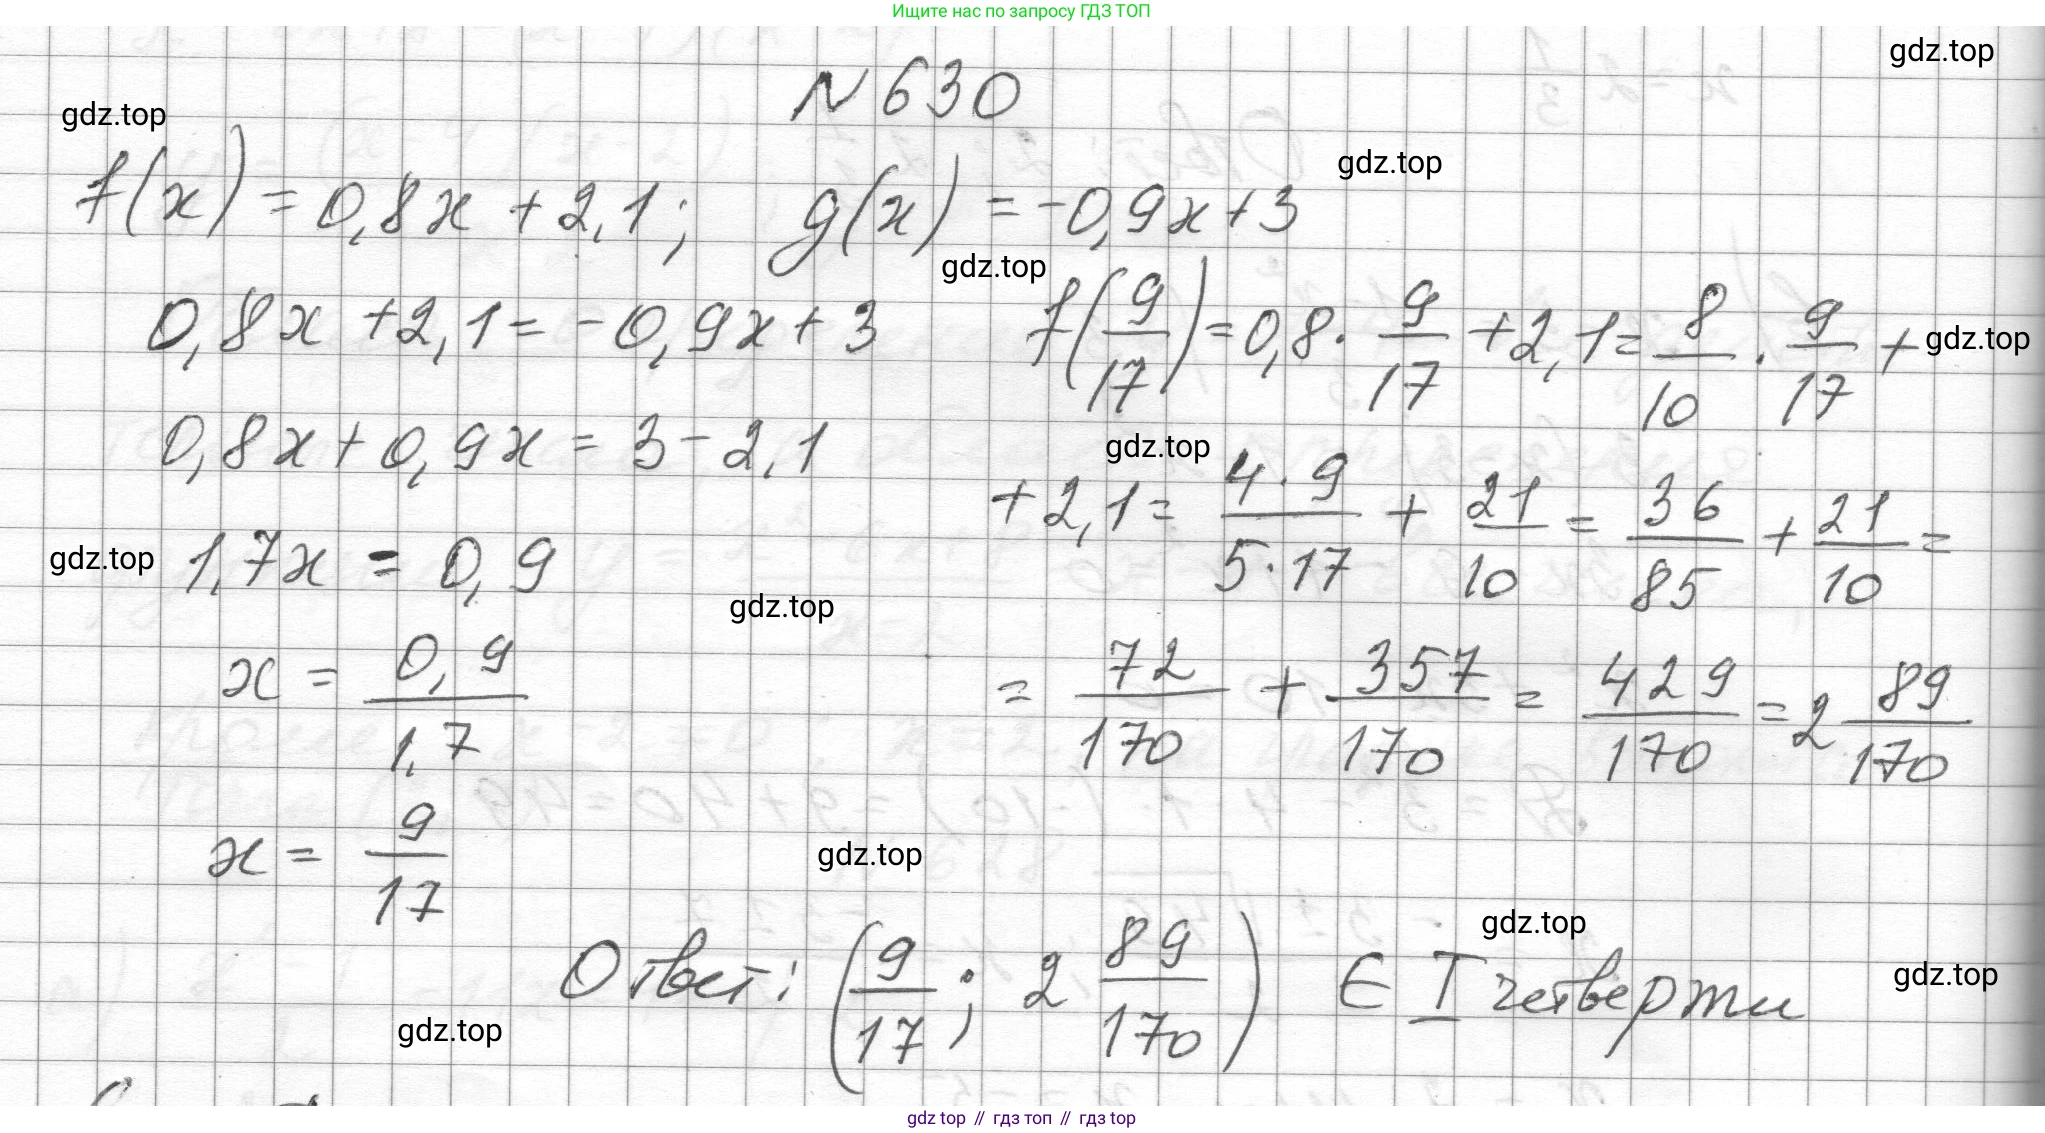 Ищите нас по запросу ГДЗ ТОП
gdz.top
N 630
gdz.top
f(x) = 0,8x + 2,1; g(x) = -0,9x + 3
gdz.top
gdz.top
0,8x + 2,1 = -0,9x + 3
f(9/17) = 0,8 · 9/17 + 2,1 = 8/10 · 9/17 +
gdz.top
0,8x + 0,9x = 3 - 2,1
gdz.top
+ 2,1 = 4·9/5·17 + 21/10 = 36/85 + 21/10 =
gdz.top
1,7x = 0,9
gdz.top
x = 0,9/1,7
= 72/170 + 357/170 = 429/170 = 2 89/170
x = 9/17
gdz.top
gdz.top
Ответ: (9/17; 2 89/170) ∈ I четверти
gdz.top
gdz.top
gdz top // гдз топ // gdz top